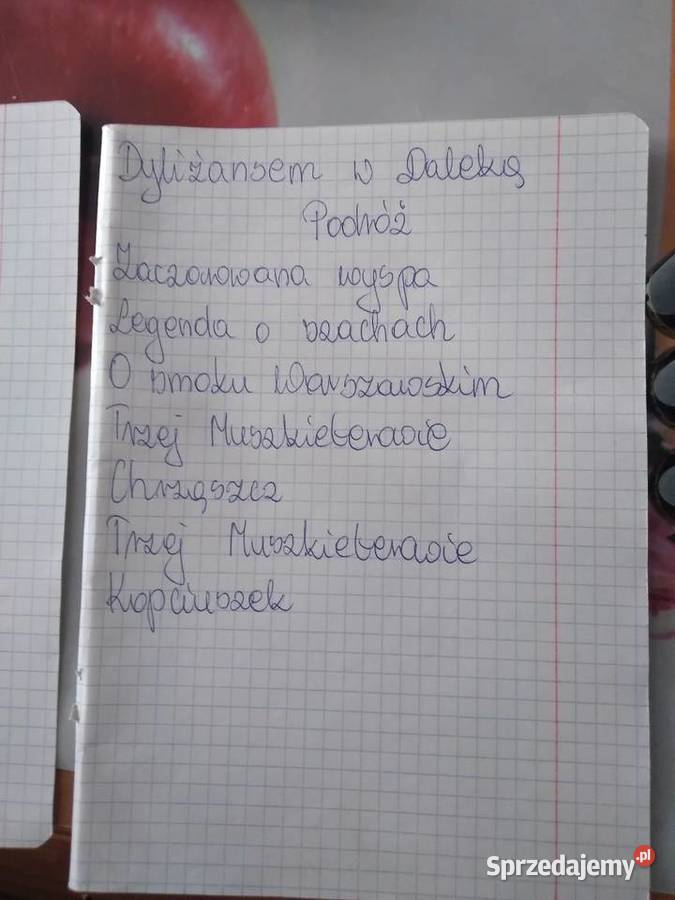 Dyliżansem w Daleką
Podróż
Zaczarowana wyspa
Legenda o szachach
O smoku Warszawskim
Trzej Muszkieterowie
Chrząszcz
Trzej Muszkieterowie
Kopciuszek
Sprzedajemy.pl